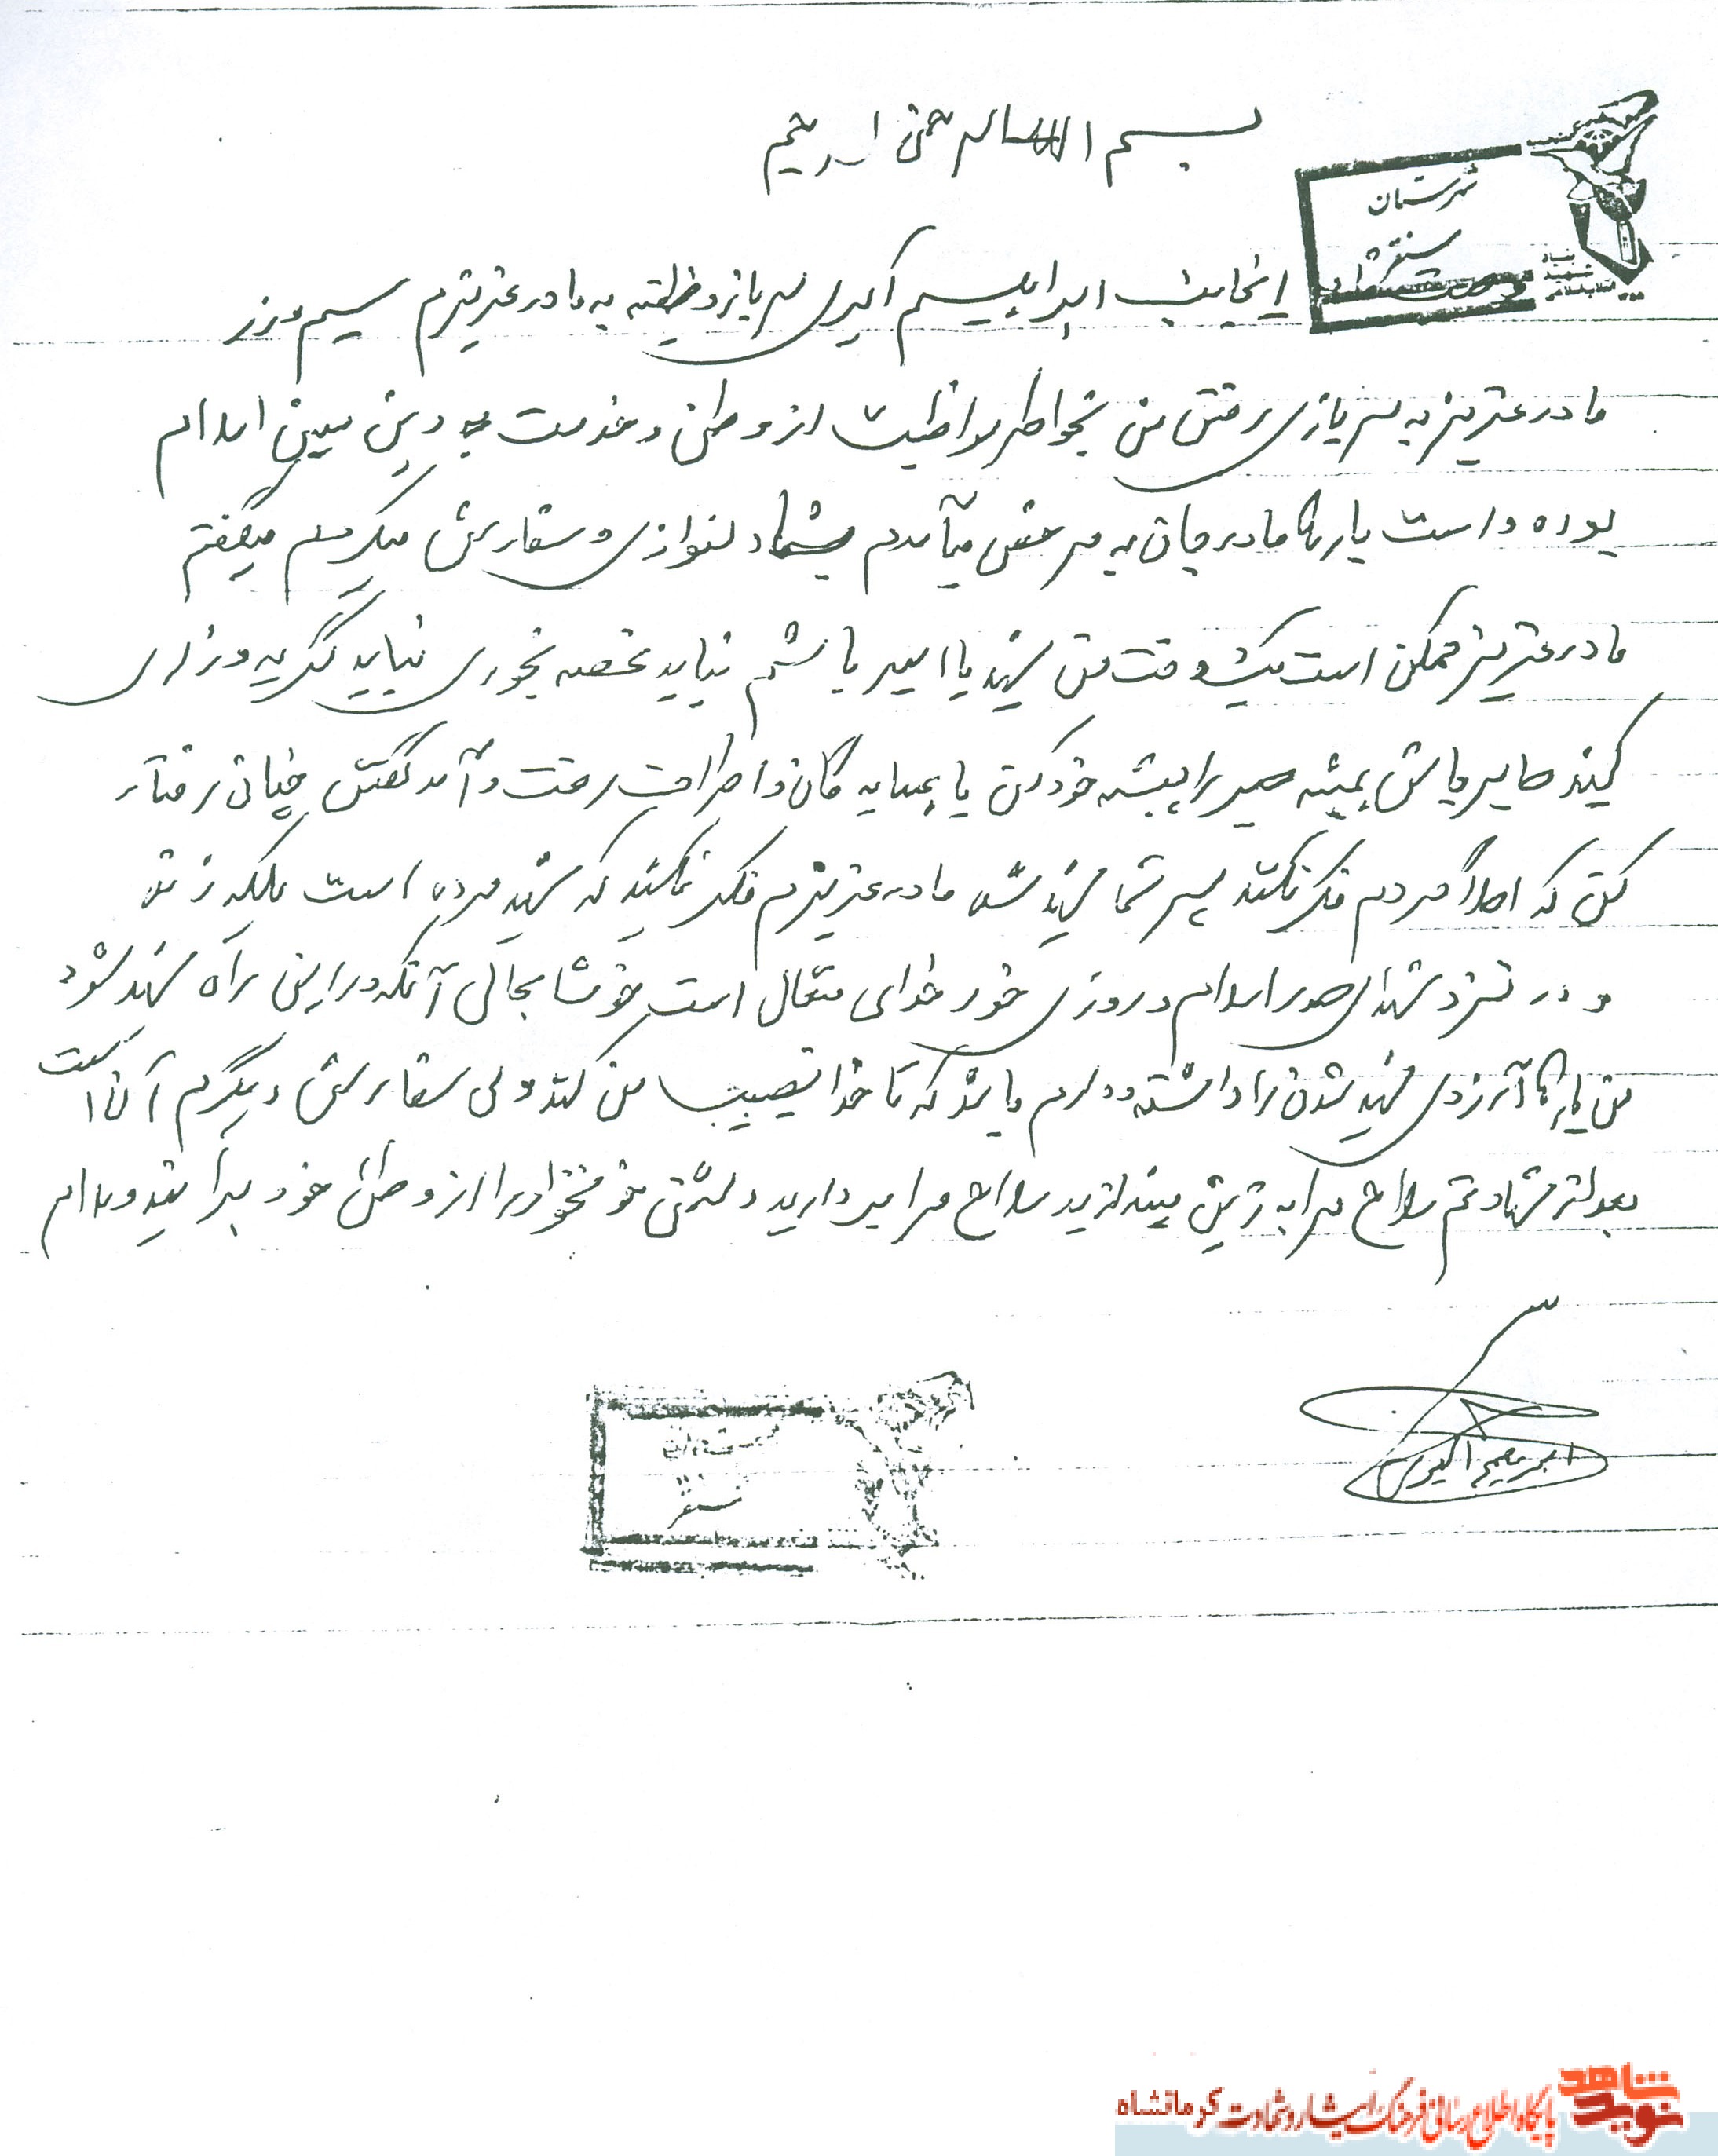 بسم الله الرحمن الرحیم
شهرستان
سنقر
بنیاد
شهید
انقلاب اسلامی
اینجانب ابرابیسم اکبری سرباز وظیفه به مادر عزیزم
مادر عزیز به سربازی رفتن من بخواطر مواظبت از وطن و خدمت به دین مبین اسلام
بوده و است بارها مادر جان به مرخصی میآمدم بشما دلنوازی و سفارش میکردم میگفتم
مادر عزیز ممکن است یک وقت من شهید یا اسیر باشم نباید غصه بخوری نباید گریه و زاری
کنید صابر باش همیشه صبر را پیشه خود کن با همسایه گان و اطراف رفت و آمد گفتن چنان رفتار
کن که اصلاً مردم فکر نکنند پسر شما شهید شده مادر عزیزم فکر نکنید که شهید مرده است بلکه زنده
و در نزد شهدای صدر اسلام و روزی خور خدای متعال است خوشا بحال آنکه در این راه شهید شود
من بارها آرزوی شهید شدن را داشته و دارم باشد که تا خدا نصیب من کند ولی سفارش دیگرم آن است
بعد از شهادتم سلاح مرا به زمین میندازید سلاح مرا بردارید دشمن خونخوار را از وطن خود برانید والسلام
ابریسم اکبری
شهرستان
سنقر
نوید شاهد
پایگاه اطلاع رسانی فرهنگ ایثار و شهادت کرمانشاه